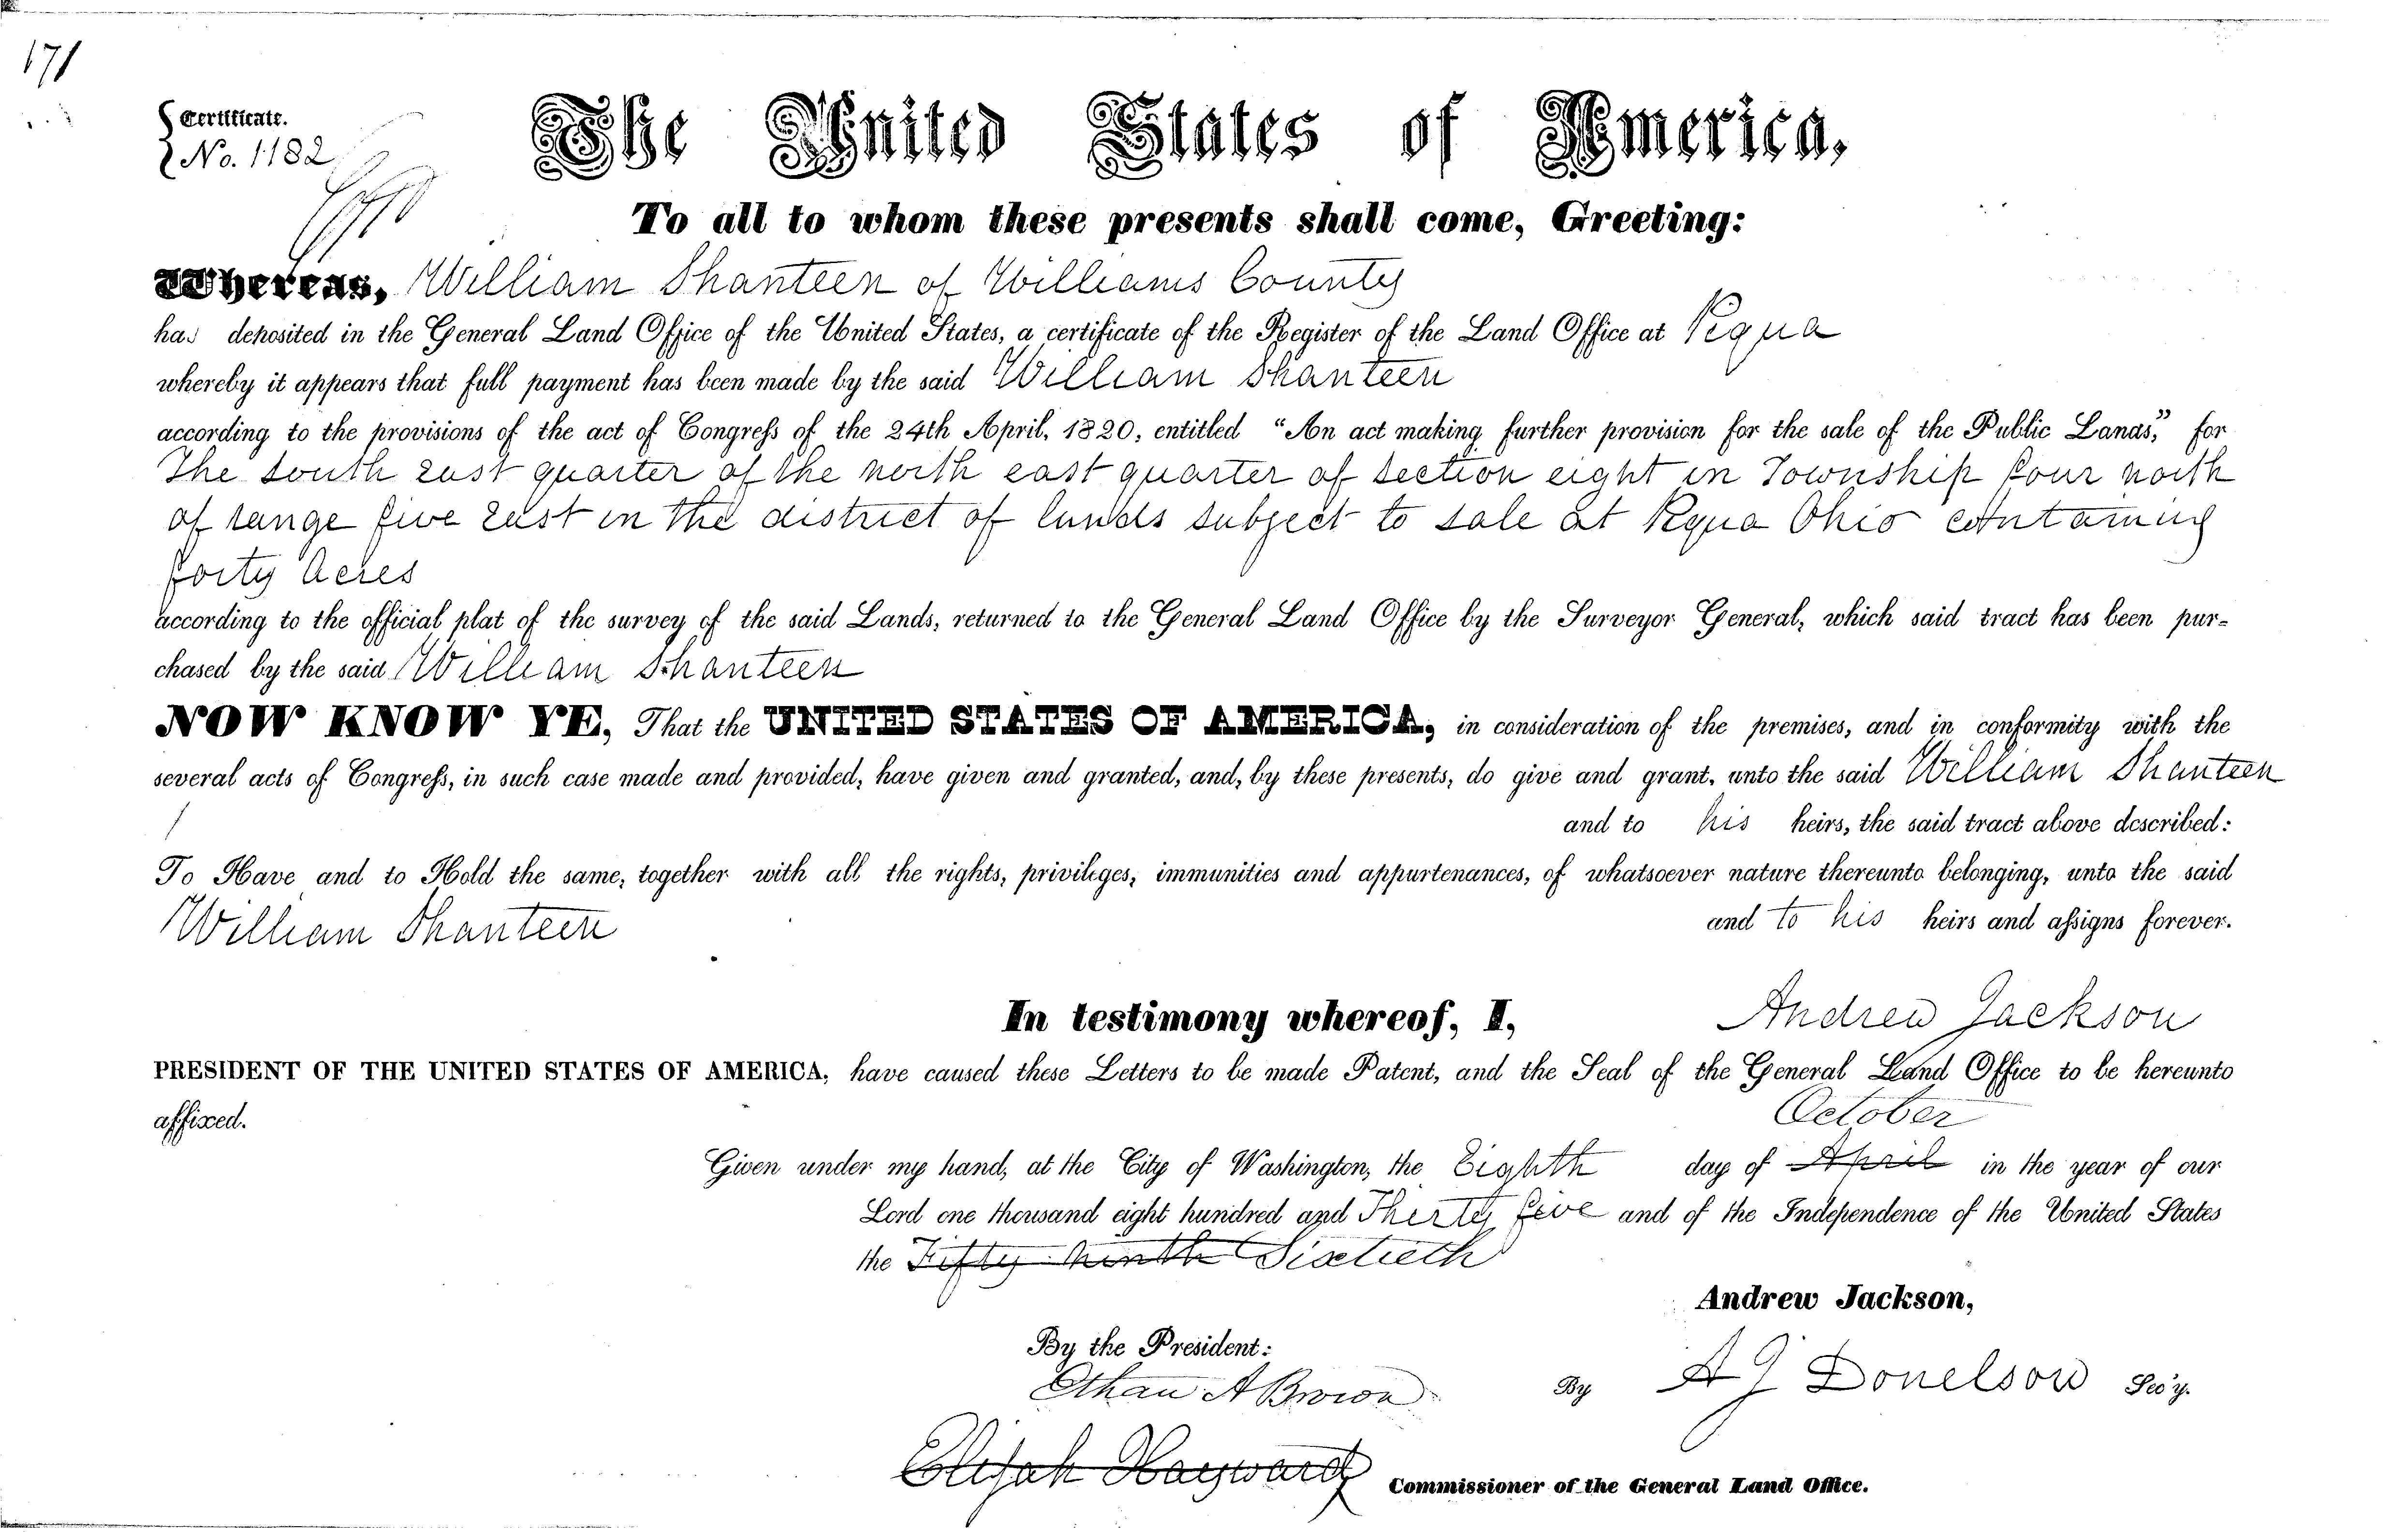 171
Certificate.
No. 1182
The United States of America,
To all to whom these presents shall come, Greeting:
Whereas, William Shanteen of Williams County
has deposited in the General Land Office of the United States, a certificate of the Register of the Land Office at Piqua
whereby it appears that full payment has been made by the said William Shanteen
according to the provisions of the act of Congress of the 24th April, 1820, entitled "An act making further provision for the sale of the Public Lands," for
The South East quarter of the north east quarter of Section eight in Township four north
of range five East in the district of lands subject to sale at Piqua Ohio containing
forty Acres
according to the official plat of the survey of the said Lands, returned to the General Land Office by the Surveyor General, which said tract has been pur-
chased by the said William Shanteen
NOW KNOW YE, That the UNITED STATES OF AMERICA, in consideration of the premises, and in conformity with the
several acts of Congress, in such case made and provided, have given and granted, and, by these presents, do give and grant, unto the said William Shanteen
and to his heirs, the said tract above described:
To Have and to Hold the same, together with all the rights, privileges, immunities and appurtenances, of whatsoever nature thereunto belonging, unto the said
William Shanteen and to his heirs and assigns forever.
In testimony whereof, I, Andrew Jackson
PRESIDENT OF THE UNITED STATES OF AMERICA, have caused these Letters to be made Patent, and the Seal of the General Land Office to be hereunto
affixed.
October
Given under my hand, at the City of Washington, the Eighth day of April in the year of our
Lord one thousand eight hundred and Thirty five and of the Independence of the United States
the Fifty ninth Sixtieth
Andrew Jackson,
By the President:
Ethan A Brown
By A J Donelson Sec'y.
Elijah Hayward Commissioner of the General Land Office.